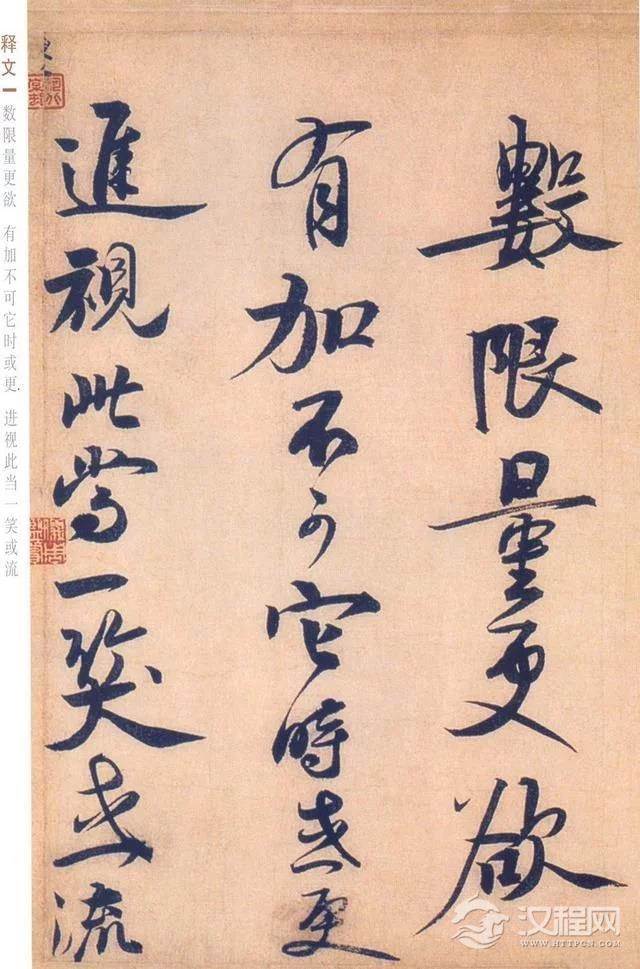 數限量更欲
有加不可它時或更
進視此當一笑或流
释文
数限量更欲 有加不可它时或更. 进视此当一笑或流
汉程网
WWW.HTTPCN.COM